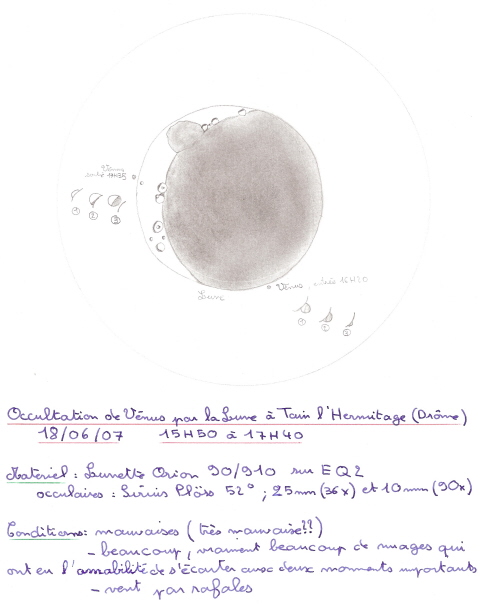 Vénus
sortie
① ② ③
Vénus, entrée 16H20
Lune
① ② ③
Occultation de Vénus par la Lune à Tain l'Hermitage (Drôme)
18/06/07 15H50 à 17H40
Matériel : Lunette Orion 90/910 sur EQ2
occulaires : Sirius Plöss 52° ; 25mm (36x) et 10mm (90x)
Conditions : mauvaises (très mauvaise!!)
- beaucoup, vraiment beaucoup de nuages qui
ont eu l'amabilité de s'écarter avec deux moments importants
- vent par rafales